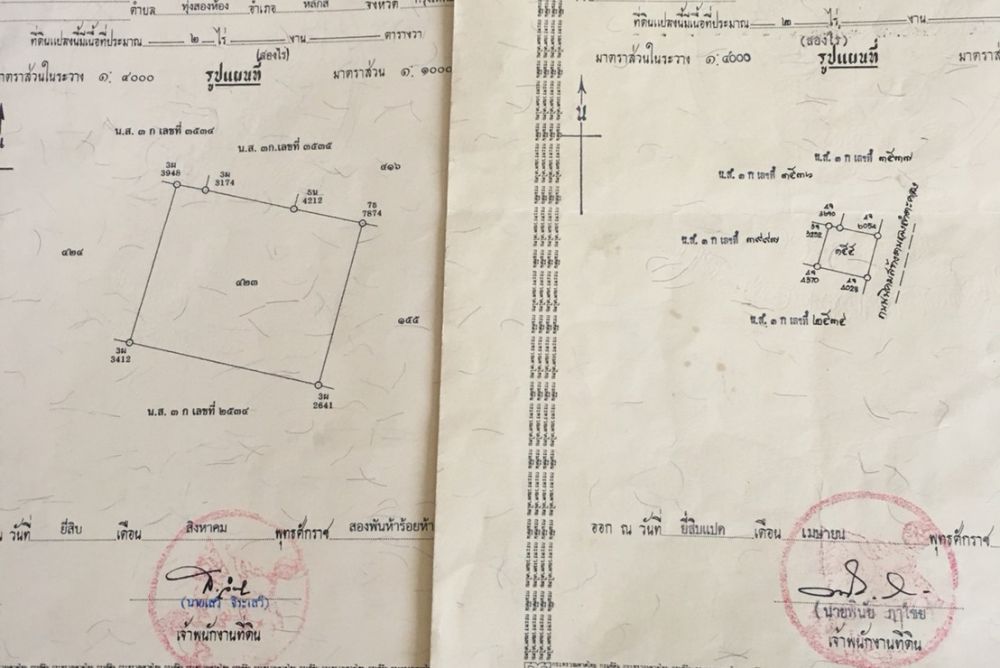 ตำบล ทุ่งสองห้อง อำเภอ หลักสี่ จังหวัด
ที่ดินแปลงนี้มีเนื้อที่ประมาณ ๒ ไร่ งาน ตารางวา
(สองไร่)
มาตราส่วนในระวาง ๑: ๔๐๐๐ รูปแผนที่ มาตราส่วน ๑: ๑๐๐๐
น.ส. ๓ ก เลขที่ ๓๕๓๔
น.ส. ๓ก.เลขที่ ๓๕๓๕
๔๑๖
3ผ
3948
3ผ
3174
5น
4212
7ธ
7874
๔๒๔
๔๒๓
๑๕๕
3ผ
3412
3ผ
2641
น.ส. ๓ ก เลขที่ ๒๕๓๔
วันที่ ยี่สิบ เดือน สิงหาคม พุทธศักราช สองพันห้าร้อยห้า
(นายเสวี จิระเสวี)
เจ้าพนักงานที่ดิน
ที่ดินแปลงนี้มีเนื้อที่ประมาณ ๒ ไร่, งาน
(สองไร่)
มาตราส่วนในระวาง ๑: ๔๐๐๐ รูปแผนที่ มาตรา
น
น.ส. ๓ ก เลขที่ ๓๕๓๗
น.ส. ๓ ก เลขที่ ๓๕๓๖
น.ส. ๓ ก เลขที่ ๓๙๙๗
๑๕๕
น.ส. ๓ ก เลขที่ ๒๕๓๕
ออก ณ วันที่ ยี่สิบแปด เดือน เมษายน พุทธศักราช
เจ้าพนักงานที่ดิน